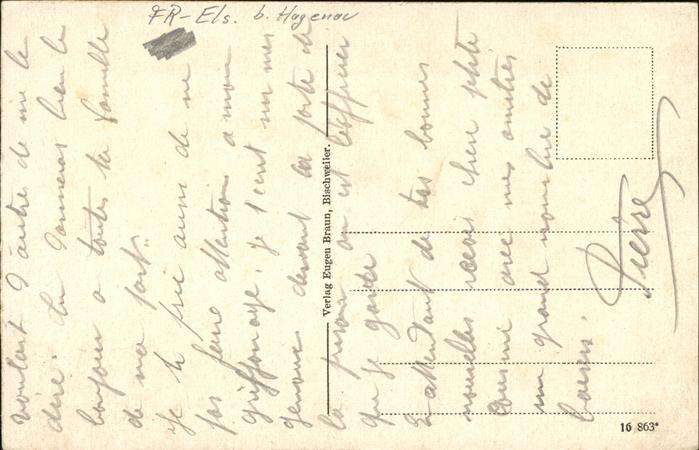 FR-Els. b. Hagenau
voulant d'autre de me le
dire. tu donneras bien le
bonjour a toutes ta famille
de ma part.
Je te prie aussi de ne
pas faire attention a mon
griffonage. Je t'ecrit sur mes
genoux devant la porte de
la prison ou est l'officier
que je garde
L'attendant de tes bonnes
nouvelles recois chere petite
cousine avec mes amitiés
un grand nombre de
baisers.
Pierre
Verlag Eugen Braun, Bischweiler.
16 863*